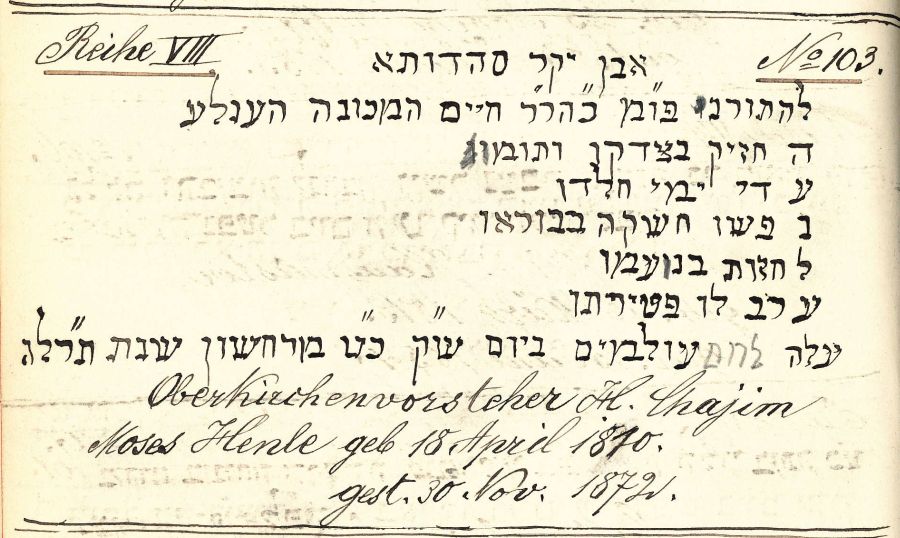 Reihe VIII
No 103.
אבן יקר סהדותא
להתורני פו"מ כהר"ר חיים המכונה הענלע
ה חזיק בצדקו ותומו
ע די ימי חלדו
נ פשו חשקה בבוראו
ל חזות בנועמו
ע רב לו פטירתו
עלה לרום עולמים ביום ש"ק כ"ט מרחשון שנת תרל"ג
Oberkirchenvorsteher H. Chajim
Moses Henle geb 18 April 1810.
gest. 30 Nov. 1872.